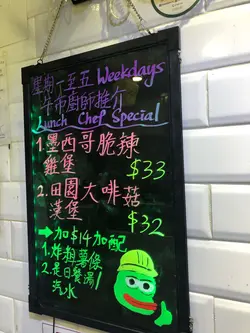 星期一至五 Weekdays
午市廚師推介
Lunch Chef Special
1. 墨西哥脆辣
雞堡 $33
2. 田園大啡菇
漢堡 $32
→加$14加配
1. 炸粗薯條
2. 是日餐湯/
汽水